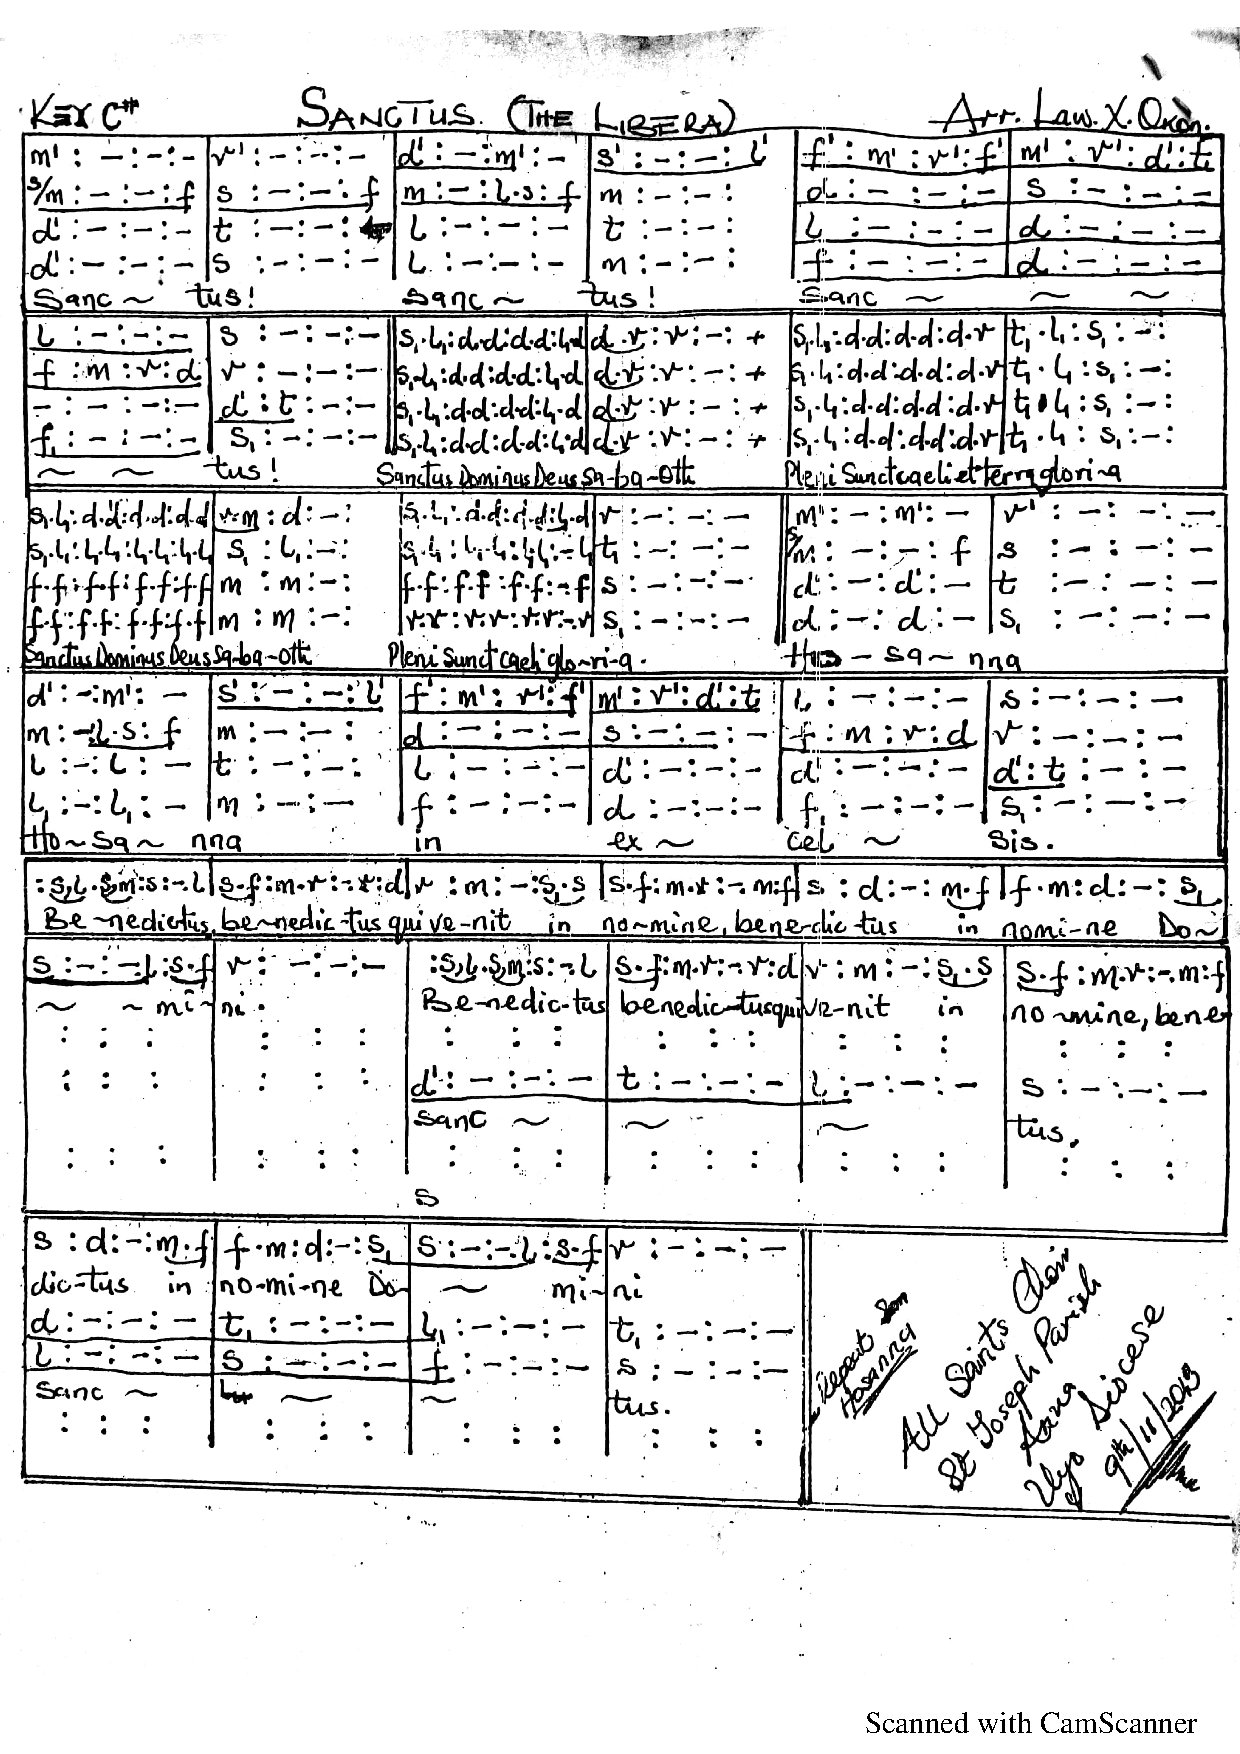 KEY C# SANCTUS. (THE LIBERA) Arr. Law. X. Okon.
m' : – : – : – | r' : – : – : – | d' : – : m' : – | s' : – : – : l' | f' : m' : r' : f' | m' : r' : d' : t
s/m : – : – : f | s : – : – : f | m : – : l . s : f | m : – : – : | d : – : – : – | s : – : – : –
d' : – : – : – | t : – : – : | l : – : – : – | t : – : – : | l : – : – : – | d : – : – : –
d' : – : – : – | s : – : – : – | l : – : – : – | m : – : – : | f : – : – : – | d : – : – : –
Sanc ~ tus! Sanc ~ tus! Sanc ~ ~ ~
l : – : – : – | s : – : – : – || s₁ . l₁ : d . d : d . d : l₁ . d | d . r : r : – : + | s₁ . l₁ : d . d : d . d : d . r | t₁ . l₁ : s₁ : – :
f : m : r : d | r : – : – : – || s₁ . l₁ : d . d : d . d : l₁ . d | d . r : r : – : + | s₁ . l₁ : d . d : d . d : d . r | t₁ . l₁ : s₁ : – :
– : – : – : – | d' : t : – : – || s₁ . l₁ : d . d : d . d : l₁ . d | d . r : r : – : + | s₁ . l₁ : d . d : d . d : d . r | t₁ . l₁ : s₁ : – :
f₁ : – : – : – | s₁ : – : – : – || s₁ . l₁ : d . d : d . d : l₁ . d | d . r : r : – : + | s₁ . l₁ : d . d : d . d : d . r | t₁ . l₁ : s₁ : – :
~ ~ tus! Sanctus Dominus Deus Sa-ba-oth Pleni Sunt caeli et terra glori-a
s₁ . l₁ : d . d : d . d : d . d | r . m : d : – : | s₁ . l₁ : d . d : d . d : l₁ . d | r : – : – : – || m' : – : m' : – | r' : – : – : –
s₁ . l₁ : l₁ . l₁ : l₁ . l₁ : l₁ . l₁ | s₁ : l₁ : – : | s₁ . l₁ : l₁ . l₁ : l₁ . l₁ : – l₁ | t₁ : – : – : – || s/m : – : – : f | s : – : – : –
f . f : f . f : f . f : f . f | m : m : – : | f . f : f . f : f . f : – . f | s : – : – : – || d' : – : d' : – | t : – : – : –
f . f : f . f : f . f : f . f | m : m : – : | r . r : r . r : r . r : – . r | s₁ : – : – : – || d : – : d : – | s₁ : – : – : –
Sanctus Dominus Deus Sa-ba-oth Pleni Sunt caeli glo-ri-a. Ho – sa ~ nna
d' : – : m' : – | s' : – : – : l' | f' : m' : r' : f' | m' : r' : d' : t | l : – : – : – | s : – : – : –
m : – : l . s : f | m : – : – : – | d : – : – : – | s : – : – : – | f : m : r : d | r : – : – : –
l : – : l : – | t : – : – : | l : – : – : – | d' : – : – : – | d' : – : – : – | d' : t : – : –
l₁ : – : l₁ : – | m : – : – | f : – : – : – | d : – : – : – | f₁ : – : – : – | s₁ : – : – : –
Ho ~ sa ~ nna in ex ~ cel ~ sis.
: s₁ l . s₁ m : s : – . l | s . f : m . r : – . r : d | r : m : – : s₁ . s | s . f : m . r : – . m : f | s : d : – : m . f | f . m : d : – : s₁
Be~nedictus, be~nedic-tus qui ve-nit in no~mine, benedic tus in nomi-ne Do~
s : – : – . l : s . f | r : – : – : – | : s₁ l . s₁ m : s : – . l | s . f : m . r : – . r : d | r : m : – : s₁ . s | s . f : m . r : – . m : f
~ ~ mi- ni. Be-nedic-tus benedic-tus qui ve-nit in no~mine, bene
: : : | : : : | : : : | : : : | : : : | : : :
: : : | : : : | d' : – : – : – | t : – : – : – | l : – : – : – | s : – : – : –
Sanc ~ ~ ~ tus.
: : : | : : : | : : : | : : : | : : : | : : :
s
s : d : – : m . f | f . m : d : – : s₁ | s : – : – . l : s . f | r : – : – : –
dic-tus in no-mi-ne Do- ~ mi~ni
d : – : – : – | t₁ : – : – : – | l₁ : – : – : – | t₁ : – : – : –
l : – : – : – | s : – : – : – | f : – : – : – | s : – : – : –
Sanc ~ ~ ~ tus.
: : : | : : : | : : : | : : :
Repeat
Hosanna
All Saints Choir
St Joseph Parish
Uyo Diocese
9th/11/2013
Scanned with CamScanner